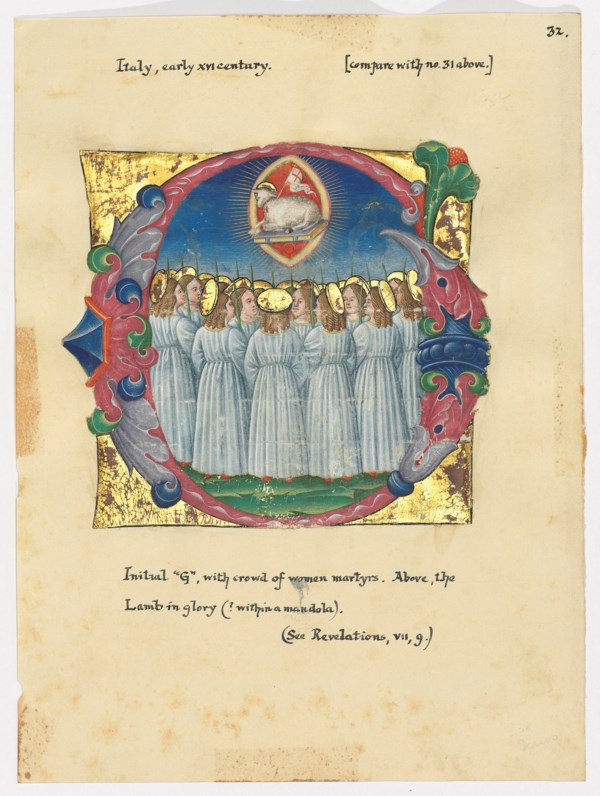 32.
Italy, early XVI century. [compare with no. 31 above.]
Initial "G", with crowd of women martyrs. Above, the
Lamb in glory (? within a mandola).
(See Revelations, VII, 9.)